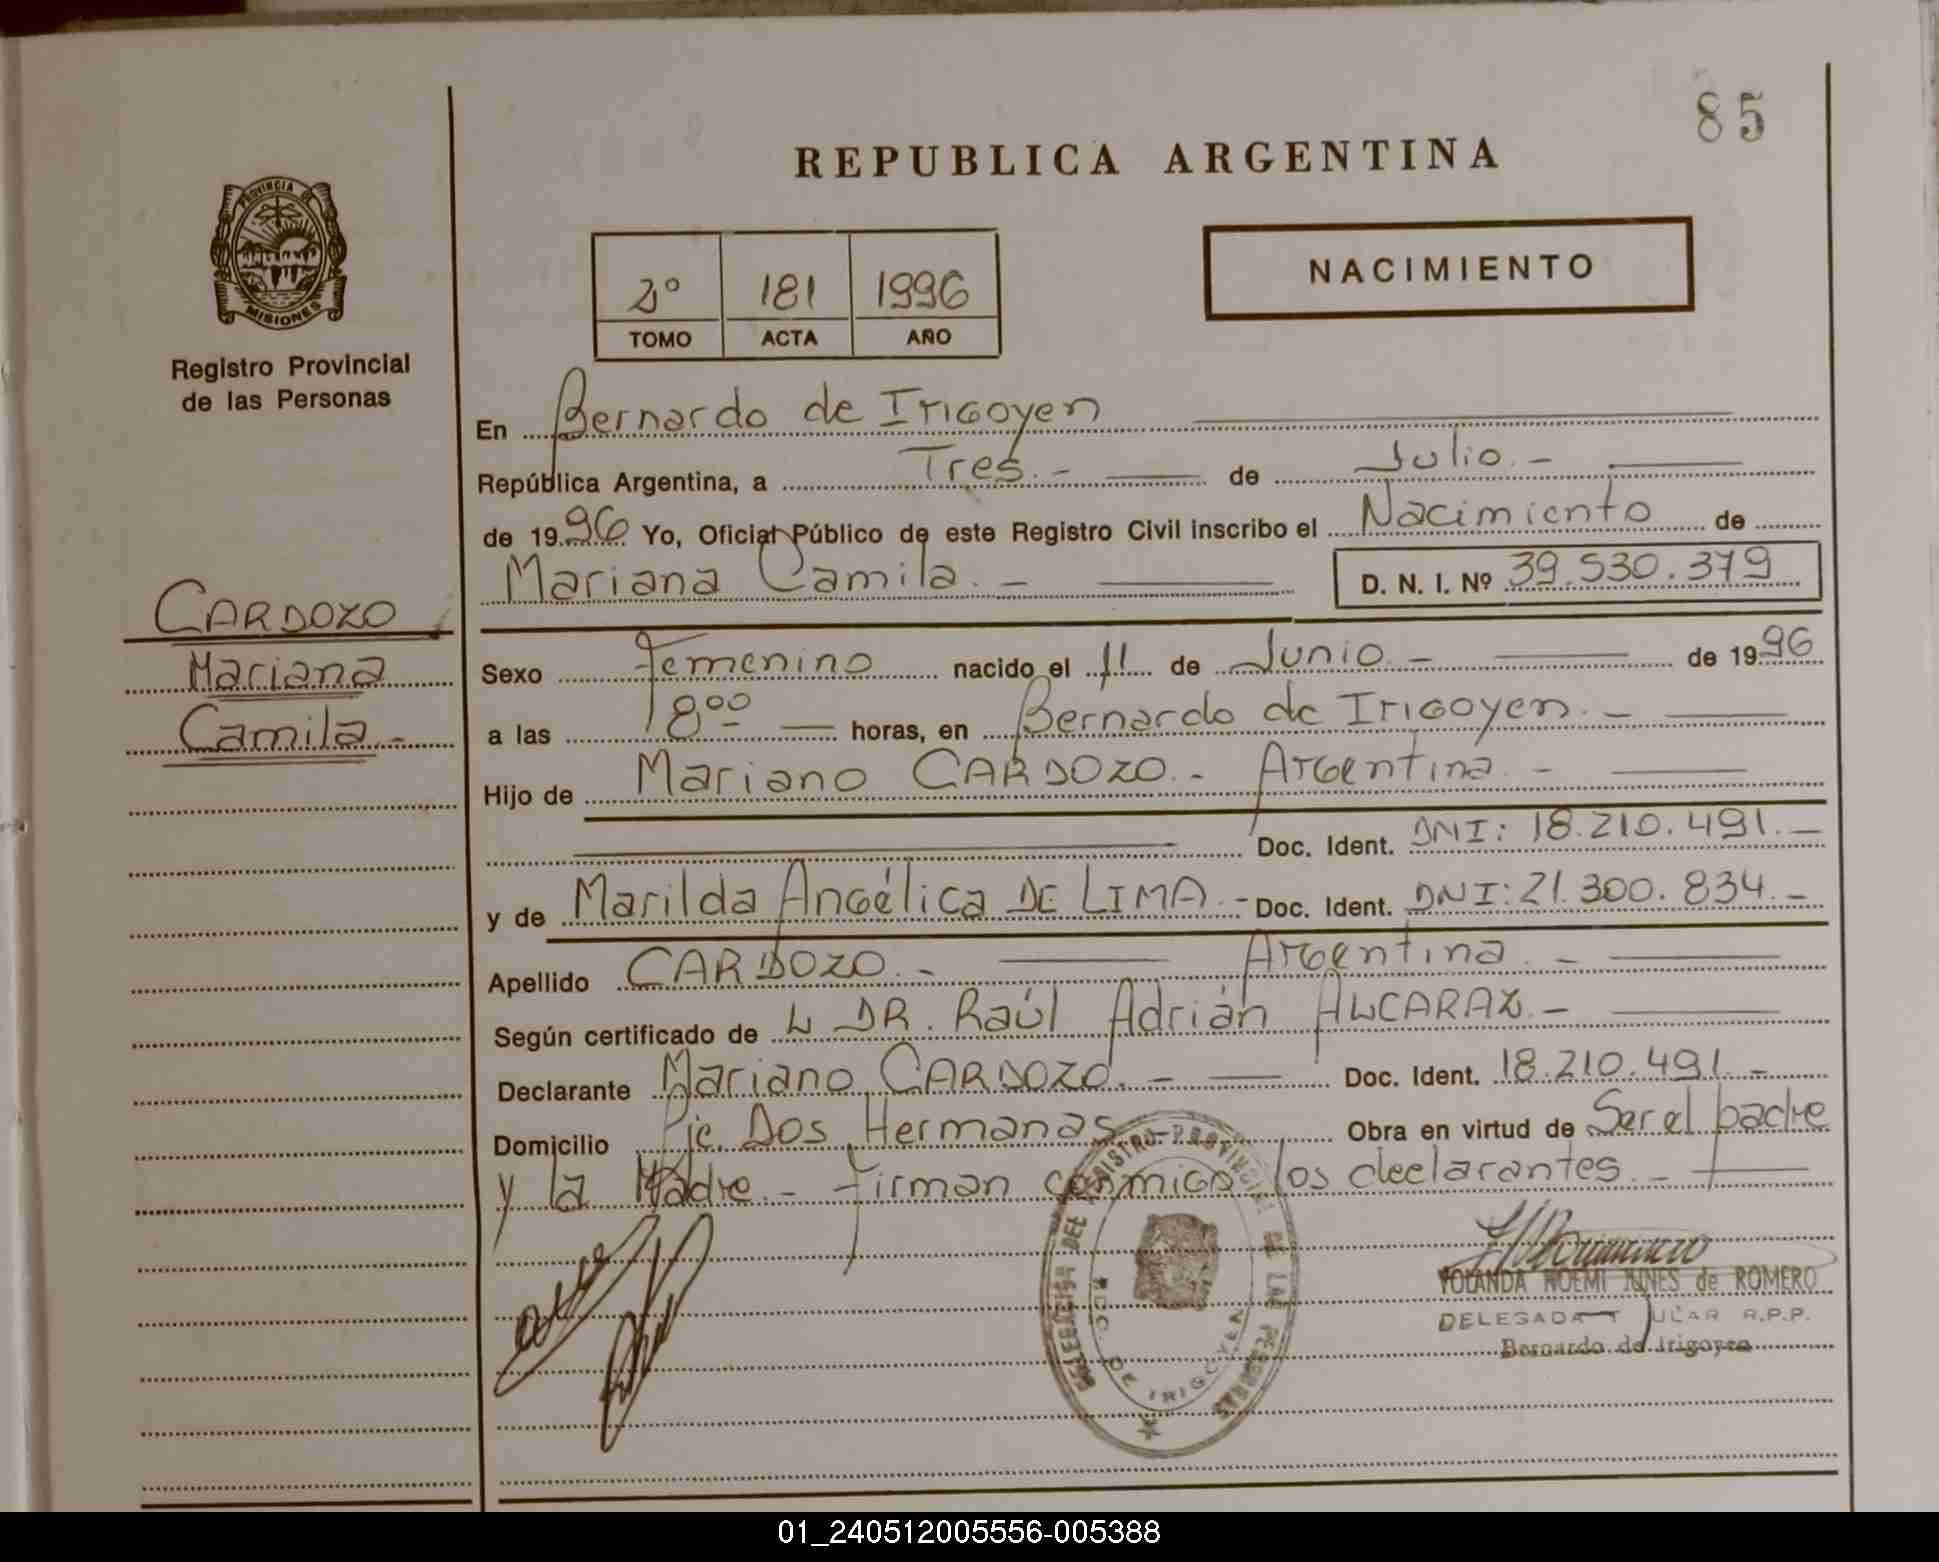 85
REPUBLICA ARGENTINA
PROVINCIA DE
MISIONES
Registro Provincial
de las Personas
2º 181 1996
TOMO ACTA AÑO
NACIMIENTO
En Bernardo de Irigoyen
República Argentina, a Tres.- de Julio.-
de 1996 Yo, Oficial Público de este Registro Civil inscribo el Nacimiento de
Mariana Camila.- D. N. I. Nº 39.530.379
CARDOZO
Mariana
Camila.-
Sexo Femenino nacido el 11 de Junio.- de 1996
a las 18⁰⁰ horas, en Bernardo de Irigoyen.-
Hijo de Mariano CARDOZO.- Argentina.-
Doc. Ident. DNI: 18.210.491.-
y de Marilda Angélica DE LIMA.- Doc. Ident. DNI: 21.300.834.-
Apellido CARDOZO.- Argentina.-
Según certificado de L DR. Raúl Adrián ALCARAZ.-
Declarante Mariano CARDOZO.- Doc. Ident. 18.210.491.-
Domicilio Pje. Dos Hermanas Obra en virtud de Ser el padre
y la Madre.- Firman conmigo los declarantes.-
DELEGACION DEL REGISTRO PROVINCIAL DE LAS PERSONAS
BDO. DE IRIGOYEN
YOLANDA NOEMI JUNES de ROMERO
DELEGADA TITULAR R.P.P.
Bernardo de Irigoyen
01_240512005556-005388